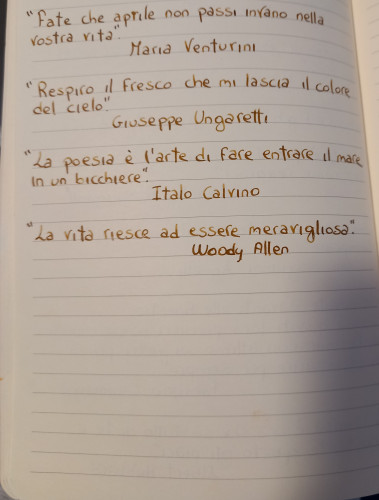 "Fate che aprile non passi invano nella
vostra vita".
Maria Venturini
"Respiro il fresco che mi lascia il colore
del cielo"
Giuseppe Ungaretti
"La poesia è l'arte di fare entrare il mare
in un bicchiere".
Italo Calvino
"La vita riesce ad essere meravigliosa".
Woody Allen